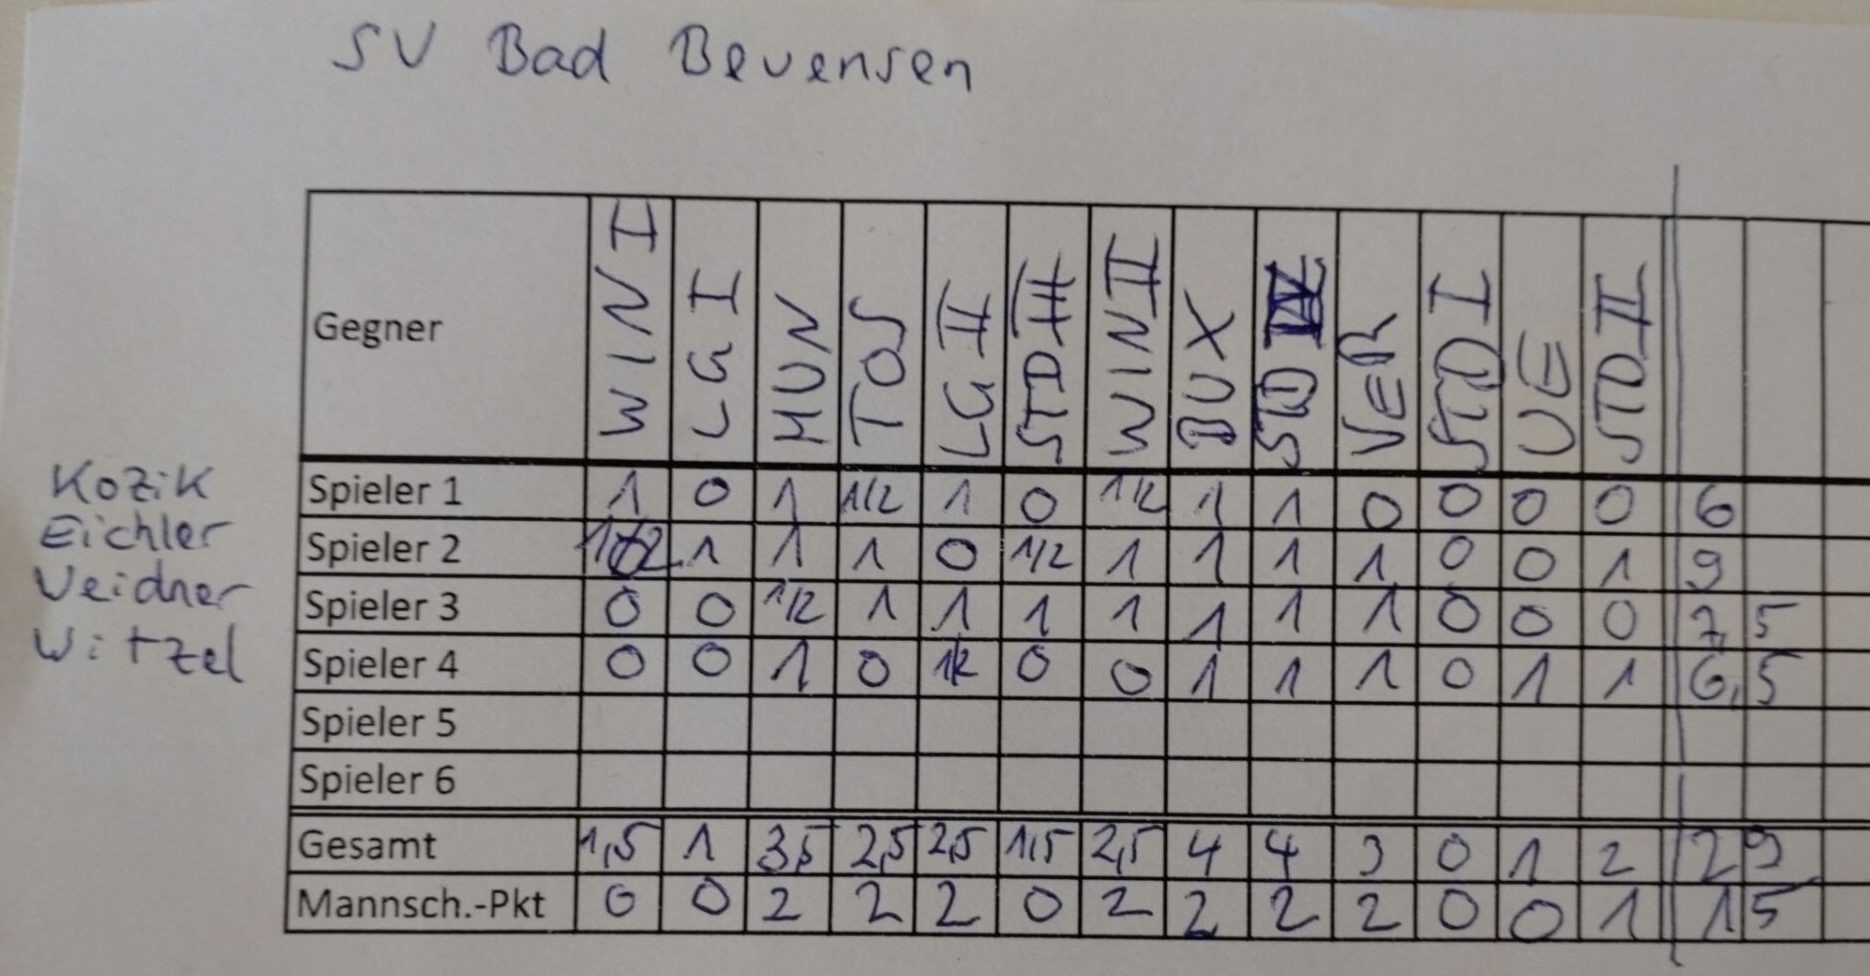 SV Bad Bevensen
Gegner WIN I LG I MUN TOS LG II STD III WIN II BUX STD IV VER STD I UE STD II
Kozik Spieler 1 1 0 1 1/2 1 0 1/2 1 1 0 0 0 0 6
Eichler Spieler 2 1/2 1 1 1 0 1/2 1 1 1 1 0 0 1 9
Veidner Spieler 3 0 0 1/2 1 1 1 1 1 1 1 0 0 0 7,5
Witzel Spieler 4 0 0 1 0 1/2 0 0 1 1 1 0 1 1 6,5
Spieler 5
Spieler 6
Gesamt 1,5 1 3,5 2,5 2,5 1,5 2,5 4 4 3 0 1 2 29
Mannsch.-Pkt 0 0 2 2 2 0 2 2 2 2 0 0 1 15